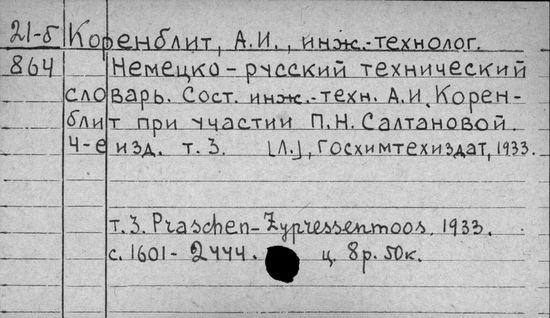 21-б Коренблит, А.И., инж.-технолог.
864 Немецко-русский технический
словарь. Сост. инж.-техн. А.И. Корен-
блит при участии П.Н. Салтановой.
4-е изд. т. 3. [Л.], Госхимтехиздат, 1933.
т. 3. Praschen-Zypressenmoos. 1933.
с. 1601-2444. ц. 8р. 50к.